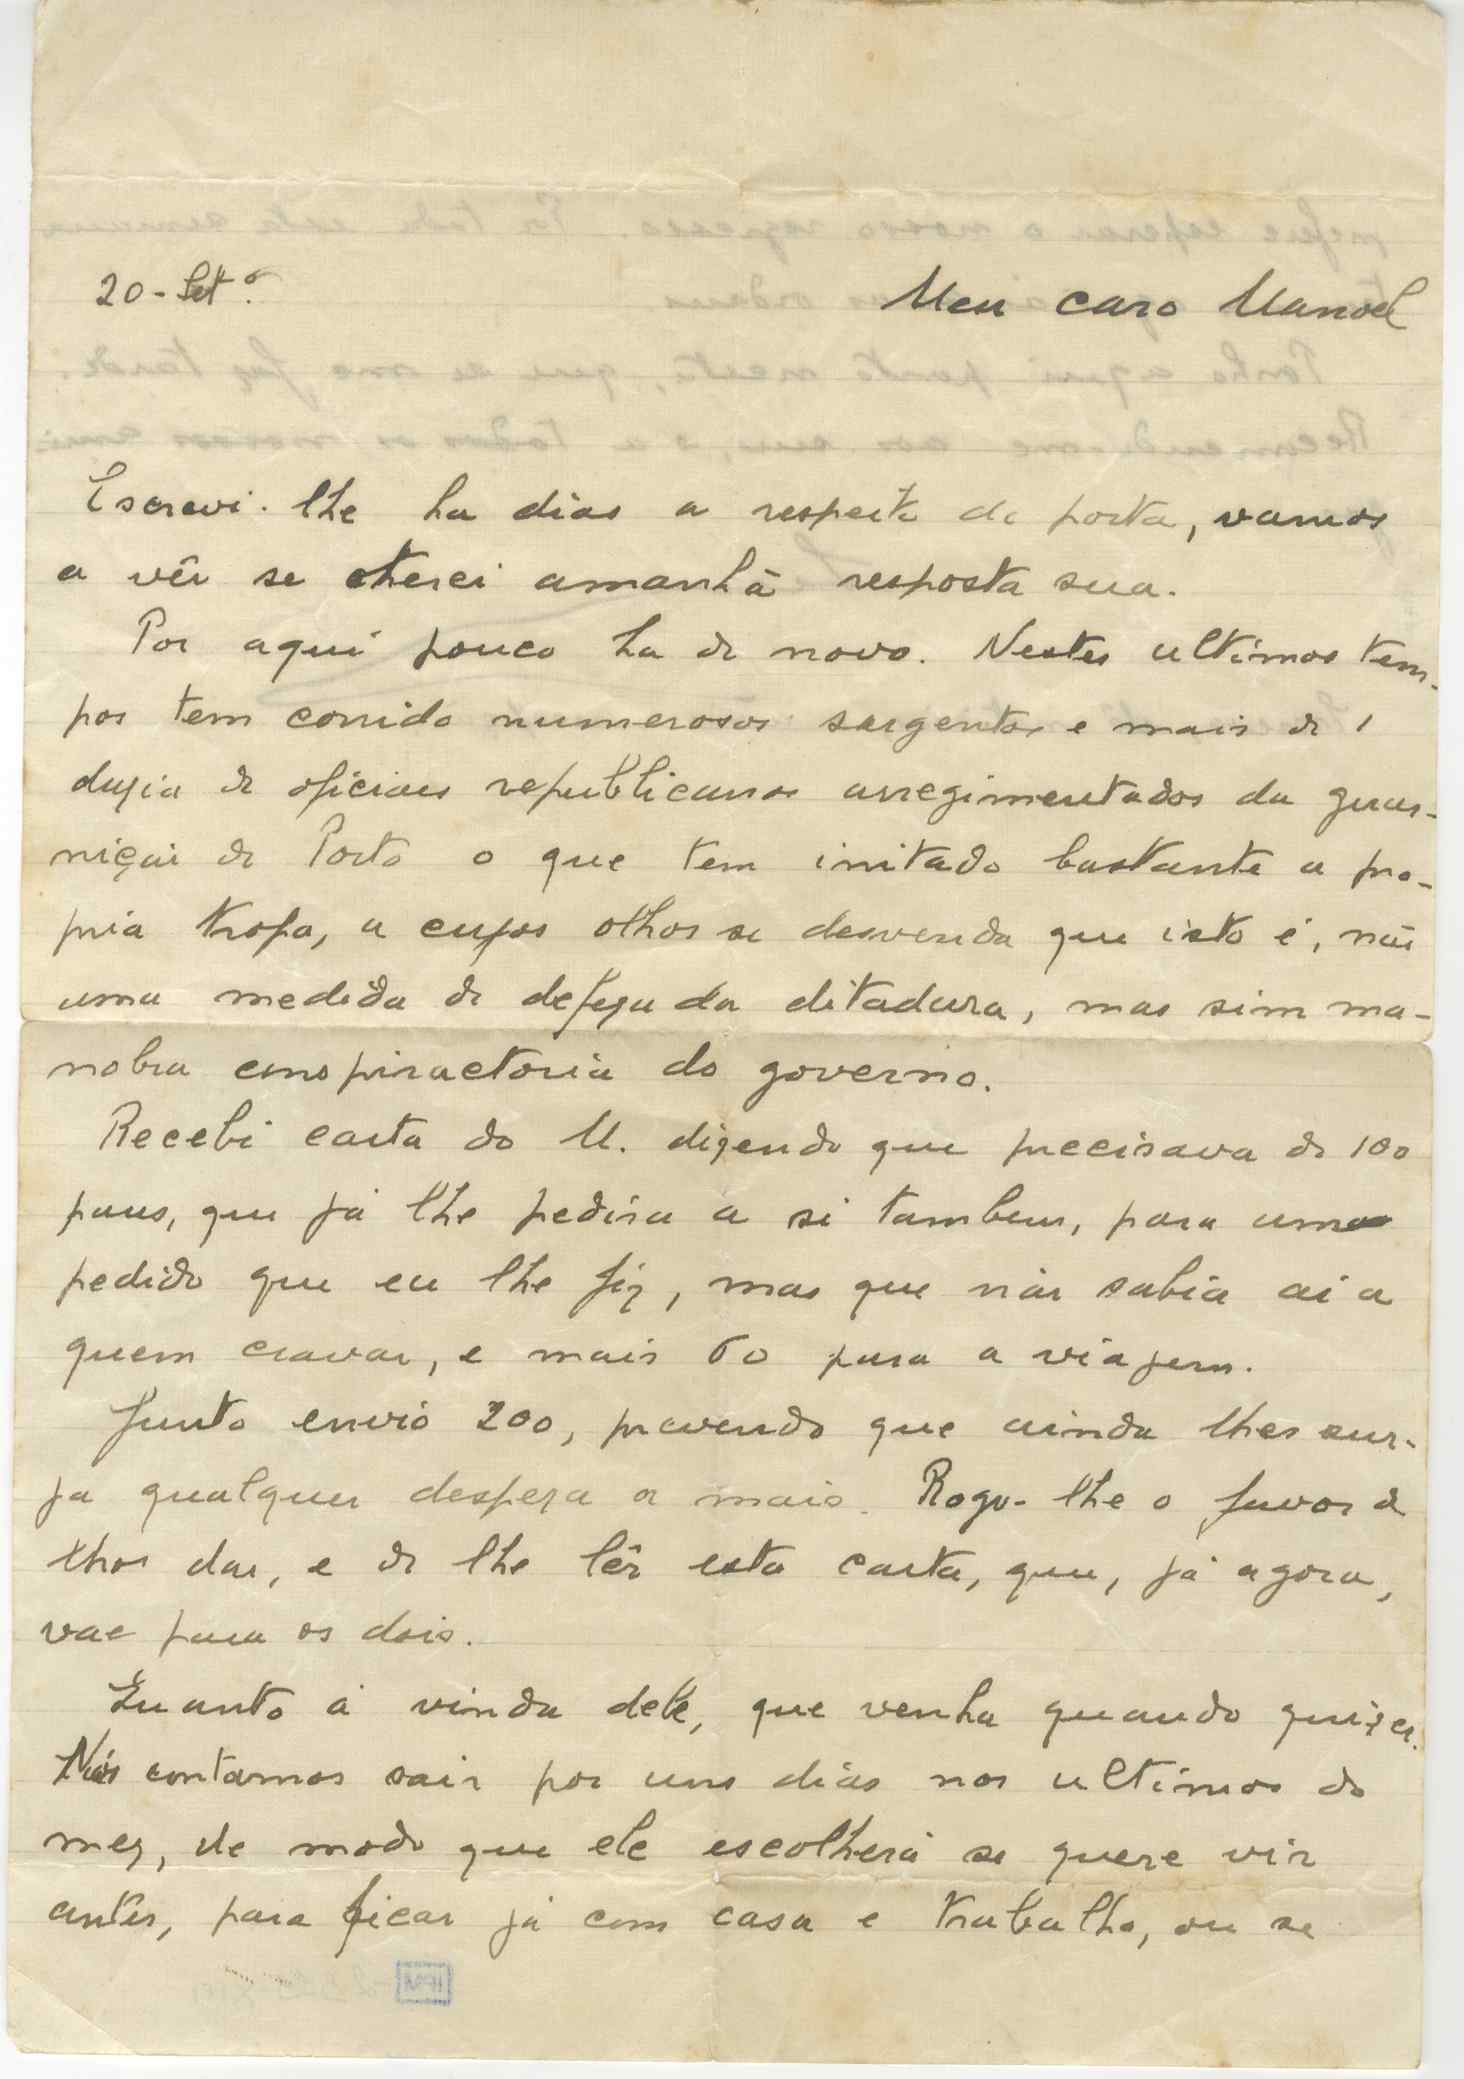 20-Setº.
Meu caro Manoel
Escrevi-lhe ha dias a respeito da porta, vamos
a vêr se terei amanhã resposta sua.
Por aqui pouco ha de novo. Nestes ultimos tem-
pos tem corrido numerosos sargentos e mais de 1
duzia de oficiaes republicanos arregimentados da guar-
nição do Porto o que tem irritado bastante a pro-
pria tropa, a cujos olhos se desvenda que isto é, não
uma medida de defeza da ditadura, mas sim ma-
nobra conspiractoria do governo.
Recebi carta do M. dizendo que precisava de 100
paus, que já lhe pedira a si tambem, para um
pedido que eu lhe fiz, mas que não sabia ai a
quem cravar, e mais 60 para a viajem.
Junto envio 200, prevendo que ainda lhes sur-
ja qualquer despeza a mais. Rogo-lhe o favor de
lhos dar, e de lhe lêr esta carta, que, já agora,
vae para os dois.
Quanto á vinda dele, que venha quando quizer.
Nós contamos sair por uns dias nos ultimos do
mez, de modo que ele escolherá se quere vir
antes, para ficar já com casa e trabalho, ou se